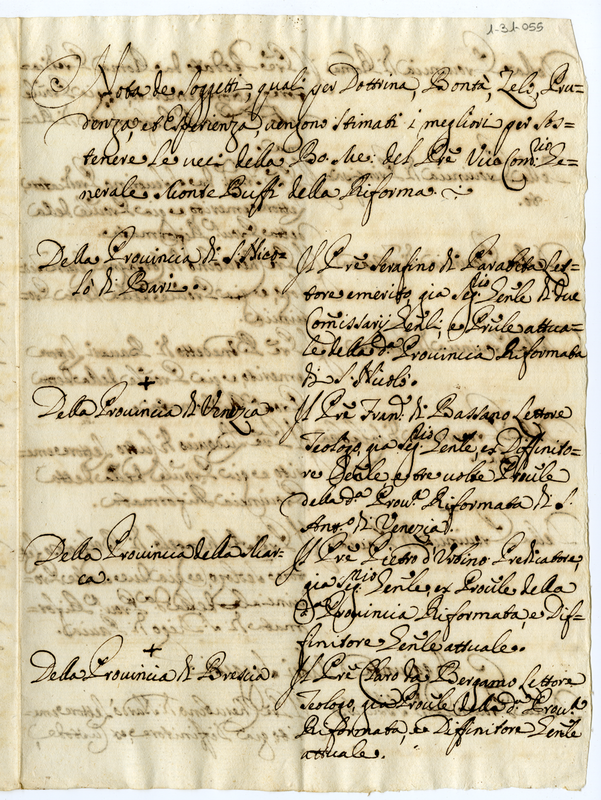 1-31-055
Nota de Soggetti, quali per Dottrina, Bontà, Zelo, Pru-
denza, et Esperienza, vengono stimati i megliori per sos-
tenere le veci della Bo: Me: del Pre Vic Comrio Ge-
nerale Buffi della Riforma.
Della Provincia di S. Nico-
lò di Bari.
Il Pre Serafino di Parabita Let-
tore emerito, già Segrio Genle di due
Commissarij Genli, e Prole attua-
le della da Provincia Riformata
di S. Nicolò.
+
Della Provincia di Venezia
Il Pre Frano di Bassano Lettore
Teologo, già Segrio Genle, ex Diffinito-
re Genle e tre volte Prole
della da Prova Riformata di S.
Anto di Venezia.
Della Provincia della Mar-
ca.
Il Pre Pietro d'Urbino Predicatore,
già Segrio Genle, ex Prole della
da Provincia Riformata, e Dif-
finitore Genle attuale.
+
Della Provincia di Brescia
Il Pre Charo da Bergamo Lettore
Teologo, già Prole della da Prova
Riformata, e Diffinitore Genle
attuale.